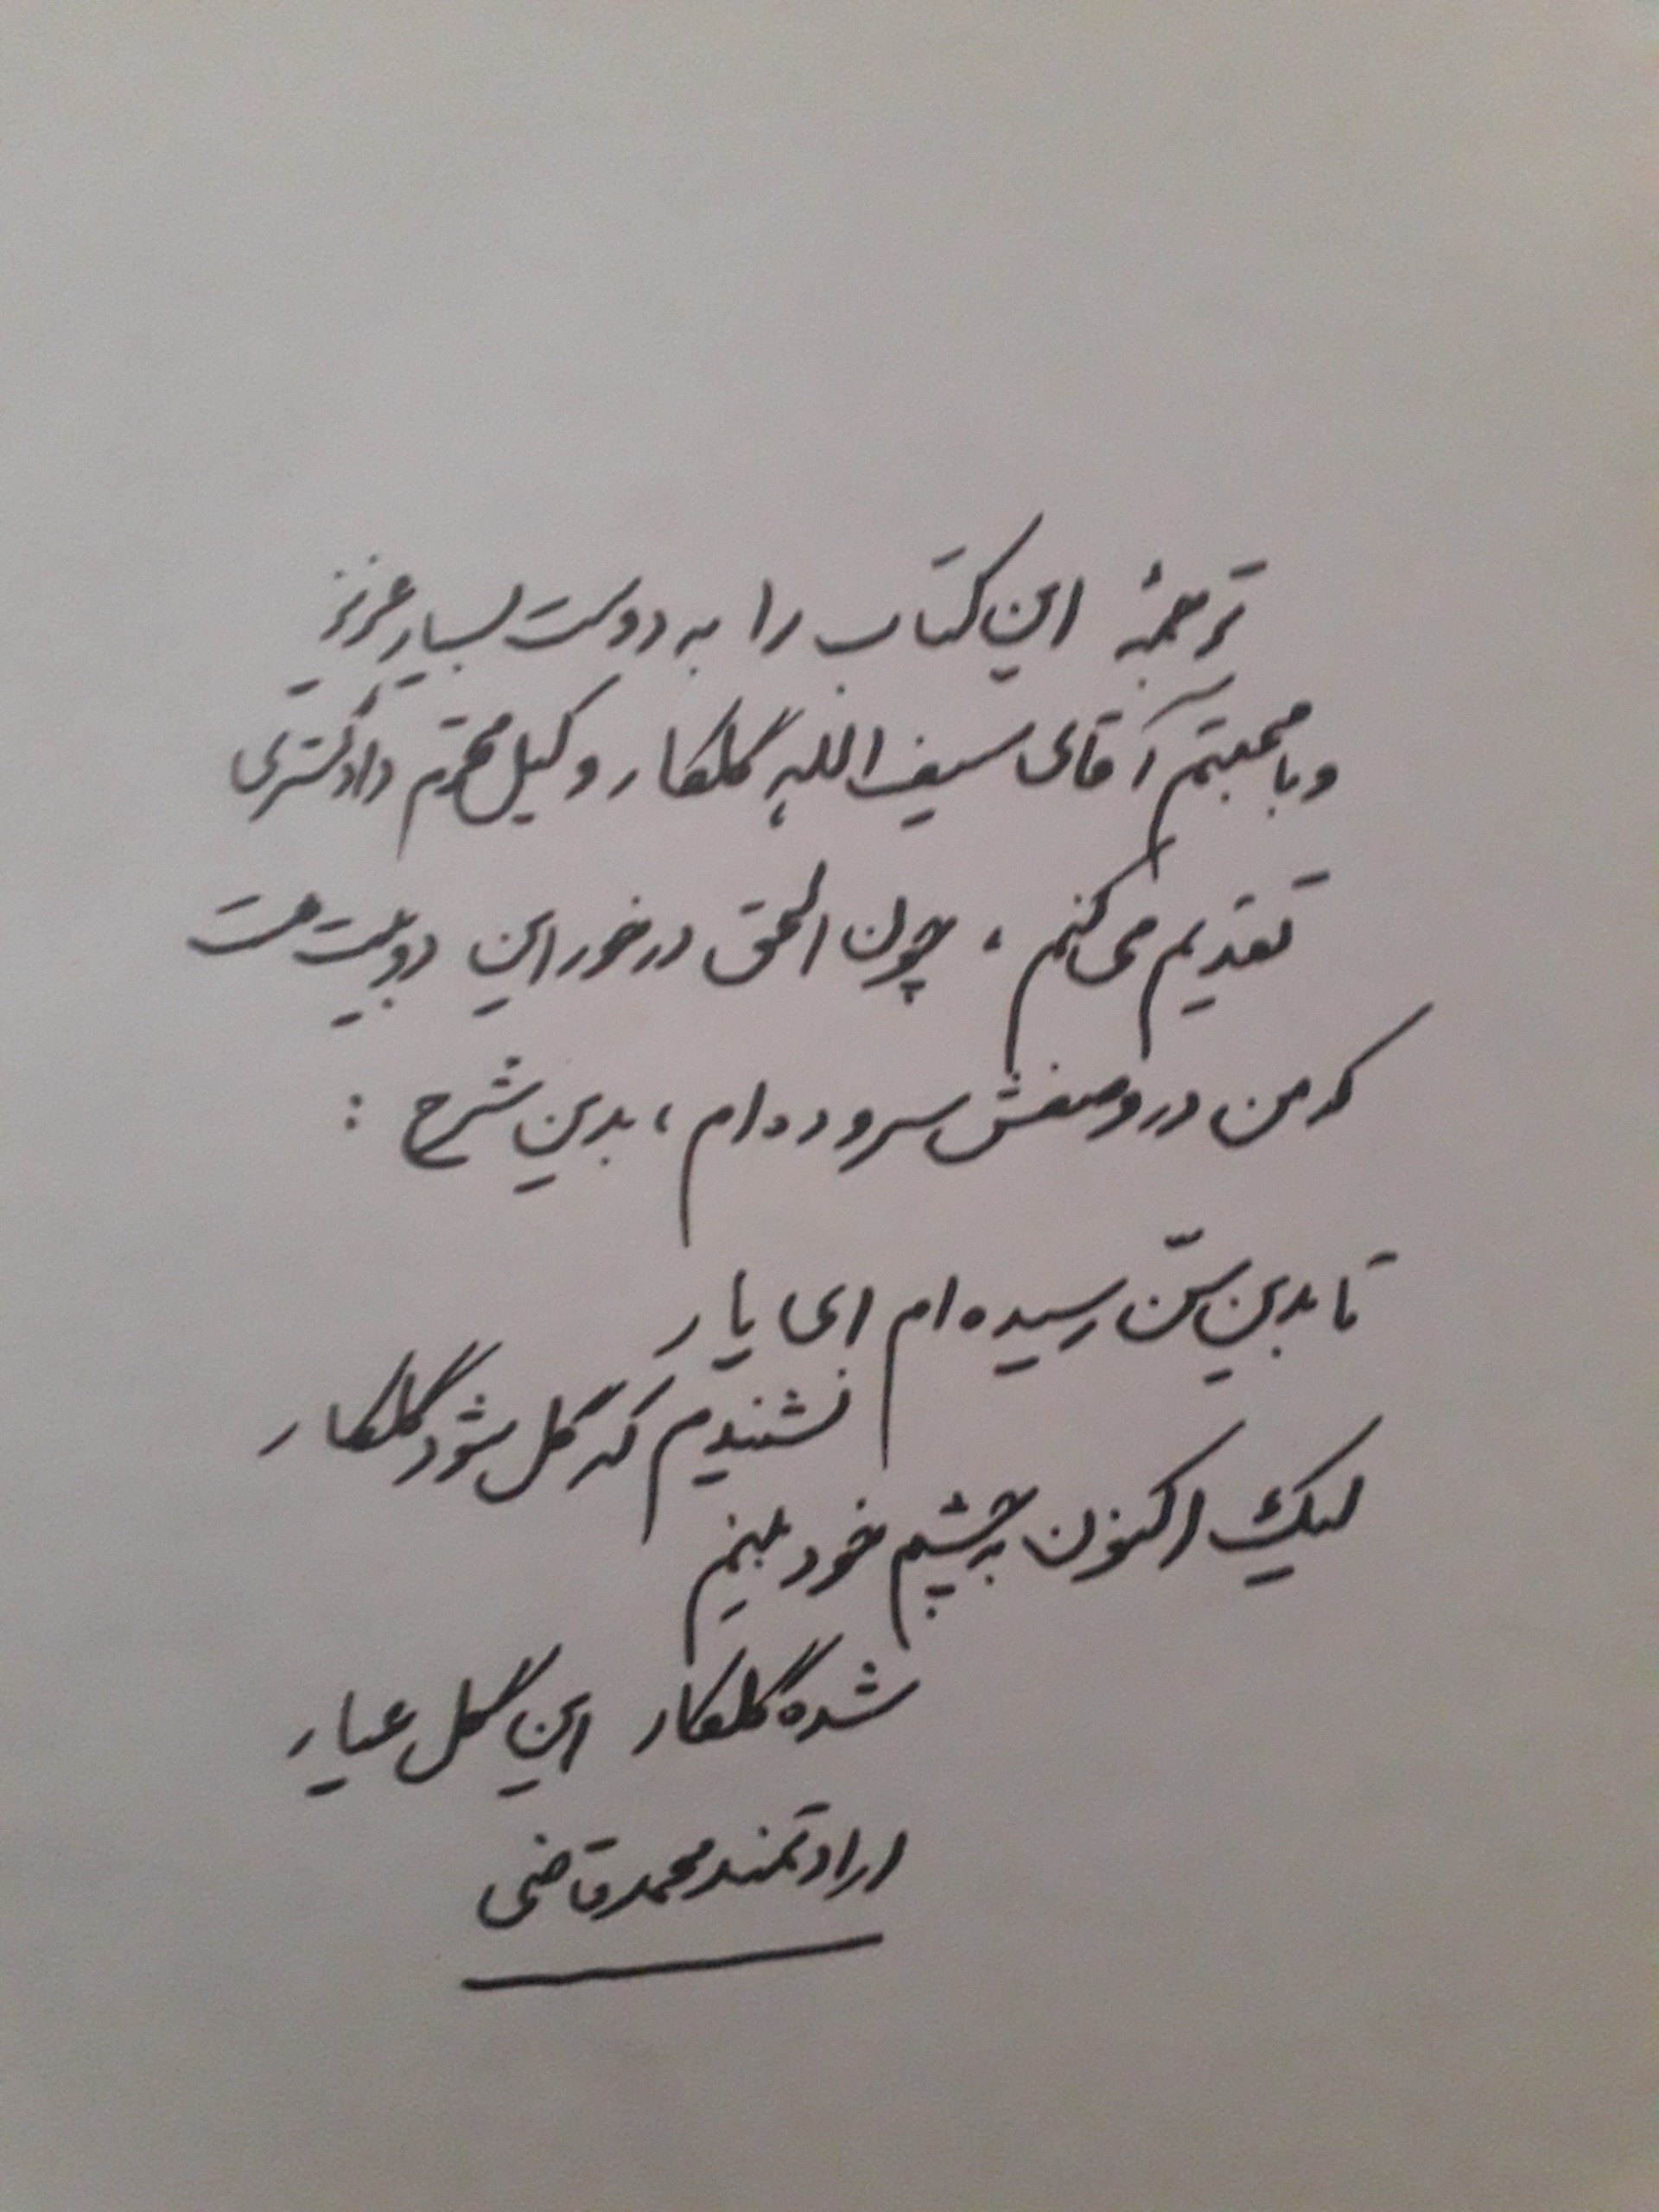 ترجمهٔ این کتاب را به دوست بسیار عزیز
و با محبتم آقای سیف الله گلکار وکیل محترم دادگستری
تقدیم می‌کنم، چون الحق درخور این دو بیت هست
که من در وصفش سروده‌ام، بدین شرح:
تا بدین سنّ رسیده‌ام ای یار
نشنیدم که گل شود گلکار
لیک اکنون به چشم خود بینم
شده گلکار این گل عیار
ارادتمند محمد قاضی